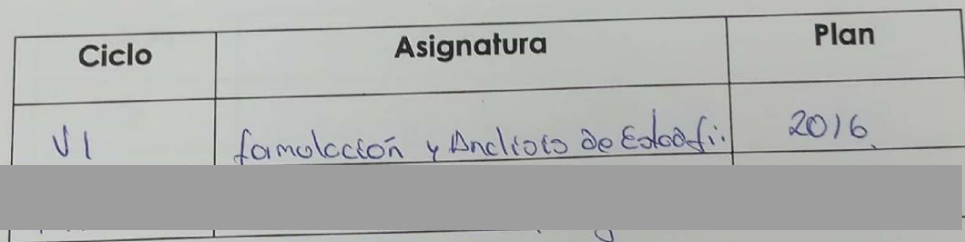 Ciclo Asignatura Plan
VI formulación y Análisis de Estadofi: 2016